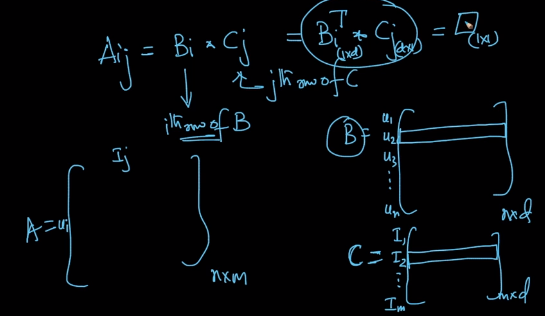 Aij = Bi * Cj = Bi^T (1xd) * Cj (dx1) = □ (1x1)
jth row of C
ith row of B
Ij
A = ui
nxm
B =
u1
u2
u3
⋮
un
nxd
C =
I1
I2
⋮
Im
mxd